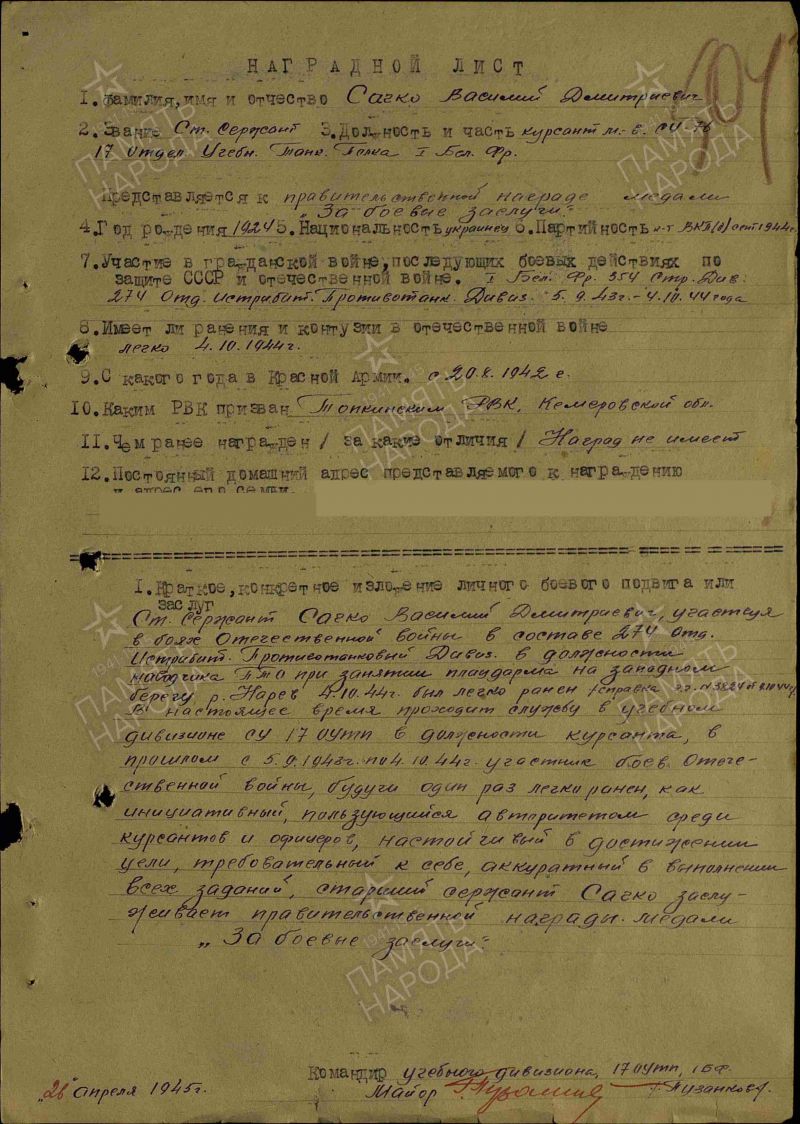 НАГРАДНОЙ ЛИСТ
1. Фамилия, имя и отчество Сачко Василий Дмитриевич
2. Звание Ст. Сержант 3. Должность и часть курсант м.-в. СУ-76
17 Отдел. Учебн. Танк. Полка I Бел. Фр.
Представляется к правительственной награде медали
„За боевые заслуги"
4. Год рождения 1924 5. Национальность украинец 6. Партийность к-т ВКП(б) 1944г.
7. Участие в гражданской войне, последующих боевых действиях по
защите СССР и отечественной войне. I Бел. Фр. 354 Стр. Див.
274 Отд. Истребит. Противотанк. Дивиз. 5.9.43г.-4.10.44 года
8. Имеет ли ранения и контузии в отечественной войне
легко 4.10.1944г.
9. С какого года в Красной Армии. с 20.8.1942 г.
10. Каким РВК призван Топкинским РВК, Кемеровской обл.
11. Чем ранее награжден / за какие отличия / Наград не имеет
12. Постоянный домашний адрес представляемого к награждению
и адрес его семьи.
1. Краткое, конкретное изложение личного боевого подвига или
заслуг
Ст. Сержант Сачко Василий Дмитриевич, участвуя
в боях Отечественной войны в составе 274 Отд.
Истребит. Противотанковый Дивиз. в должности
наводчика ПТО при занятии плацдарма на западном
берегу р. Нарев 4.10.44г. был легко ранен /справка
В настоящее время проходит службу в учебном
дивизионе СУ 17 оутп в должности курсанта, в
прошлом с 5.9.1943г. по 4.10.44г. участник боев Отече-
ственной войны, будучи один раз легко ранен, как
инициативный, пользующийся авторитетом среди
курсантов и офицеров, настойчивый в достижении
цели, требовательный к себе, аккуратный в выполнении
всех заданий, старший сержант Сачко заслу-
живает правительственной награды медали
„За боевые заслуги"
Командир учебного дивизиона, 17 оутп, 1 БФ
„26" апреля 1945г. Майор /Пузанков/
ПАМЯТЬ НАРОДА